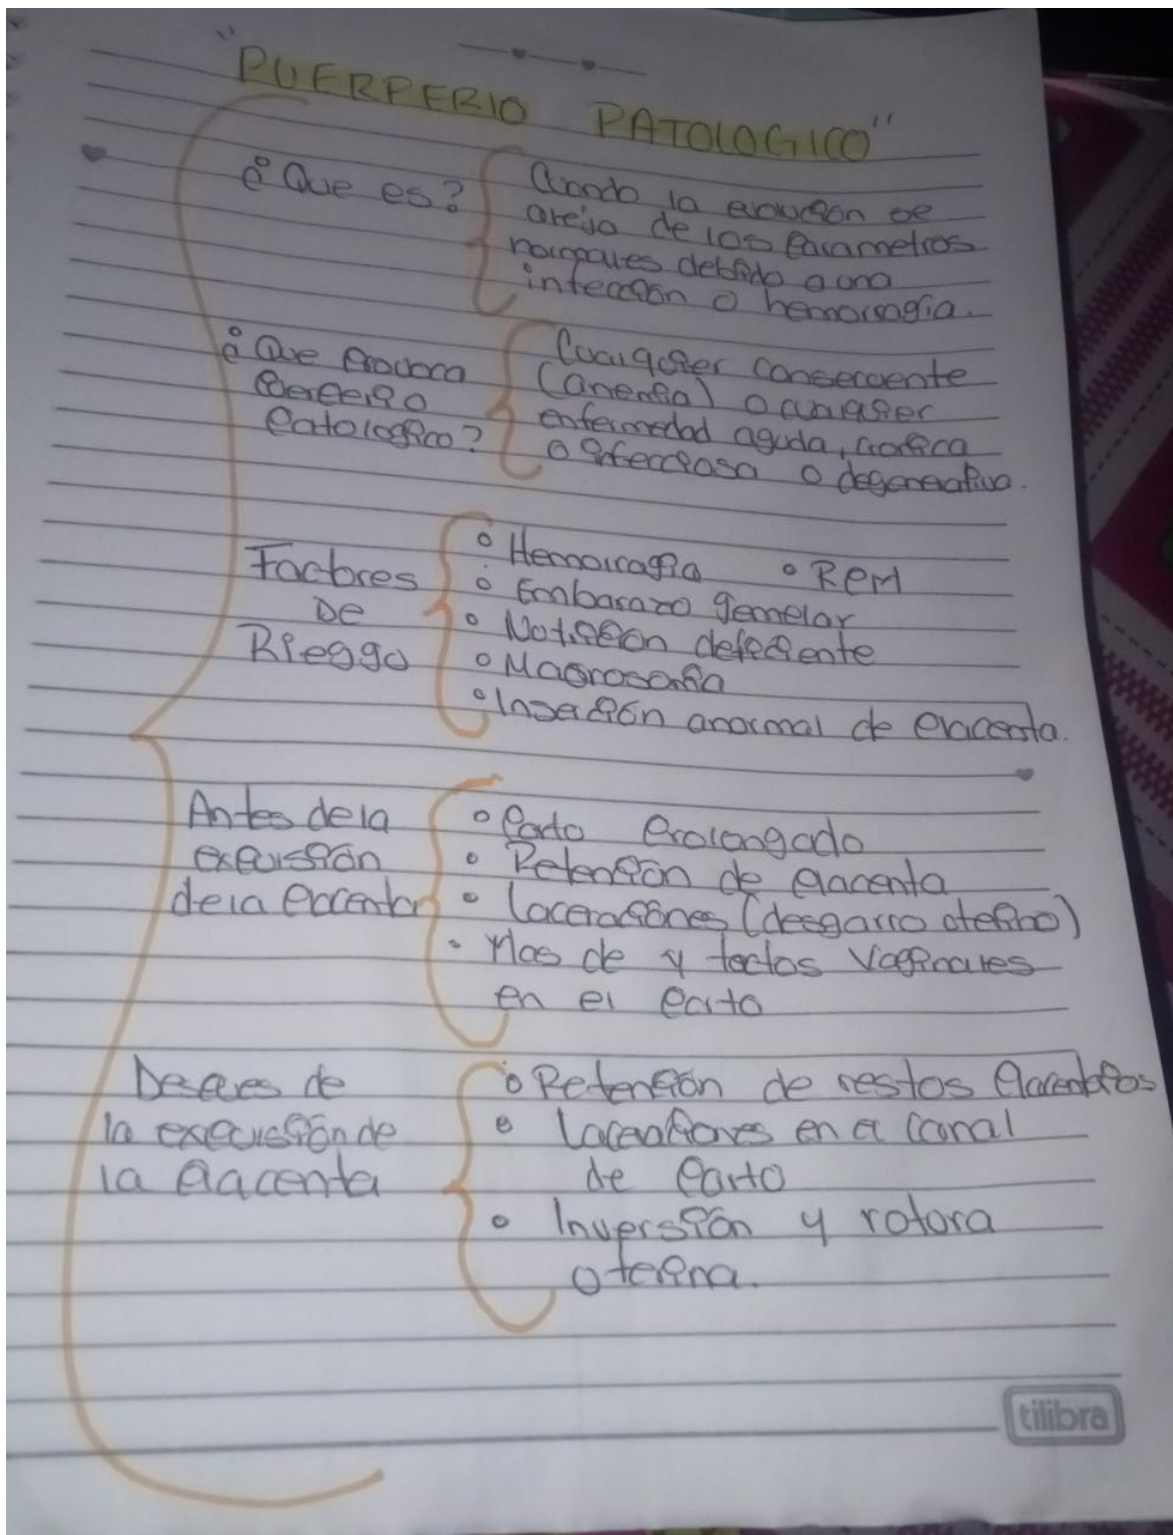 "PUERPERIO PATOLOGICO"
¿Que es?
Cuando la evolución se
aleja de los parametros
normales debido a una
infección o hemorragia.
¿Que provoca
Puerperio
Patologico?
Cualquier consecuente
(anemia) o cualquier
enfermedad aguda, cronica
o infecciosa o degenerativa.
Factores
De
Rieggo
° Hemorragia ° RPM
° Embarazo gemelar
° Nutrición deficiente
° Macrosomia
° Inserción anormal de placenta.
Antes de la
expulsión
de la placenta
° Parto Prolongado
° Retención de placenta
° Laceraciónes (desgarro uterino)
° Mas de 4 tactos Vaginales
en el parto
Despues de
la expulsión de
la placenta
° Retención de restos Placentarios
° Laceraciones en el canal
de parto
° Inversión y rotura
uterina.
tilibra